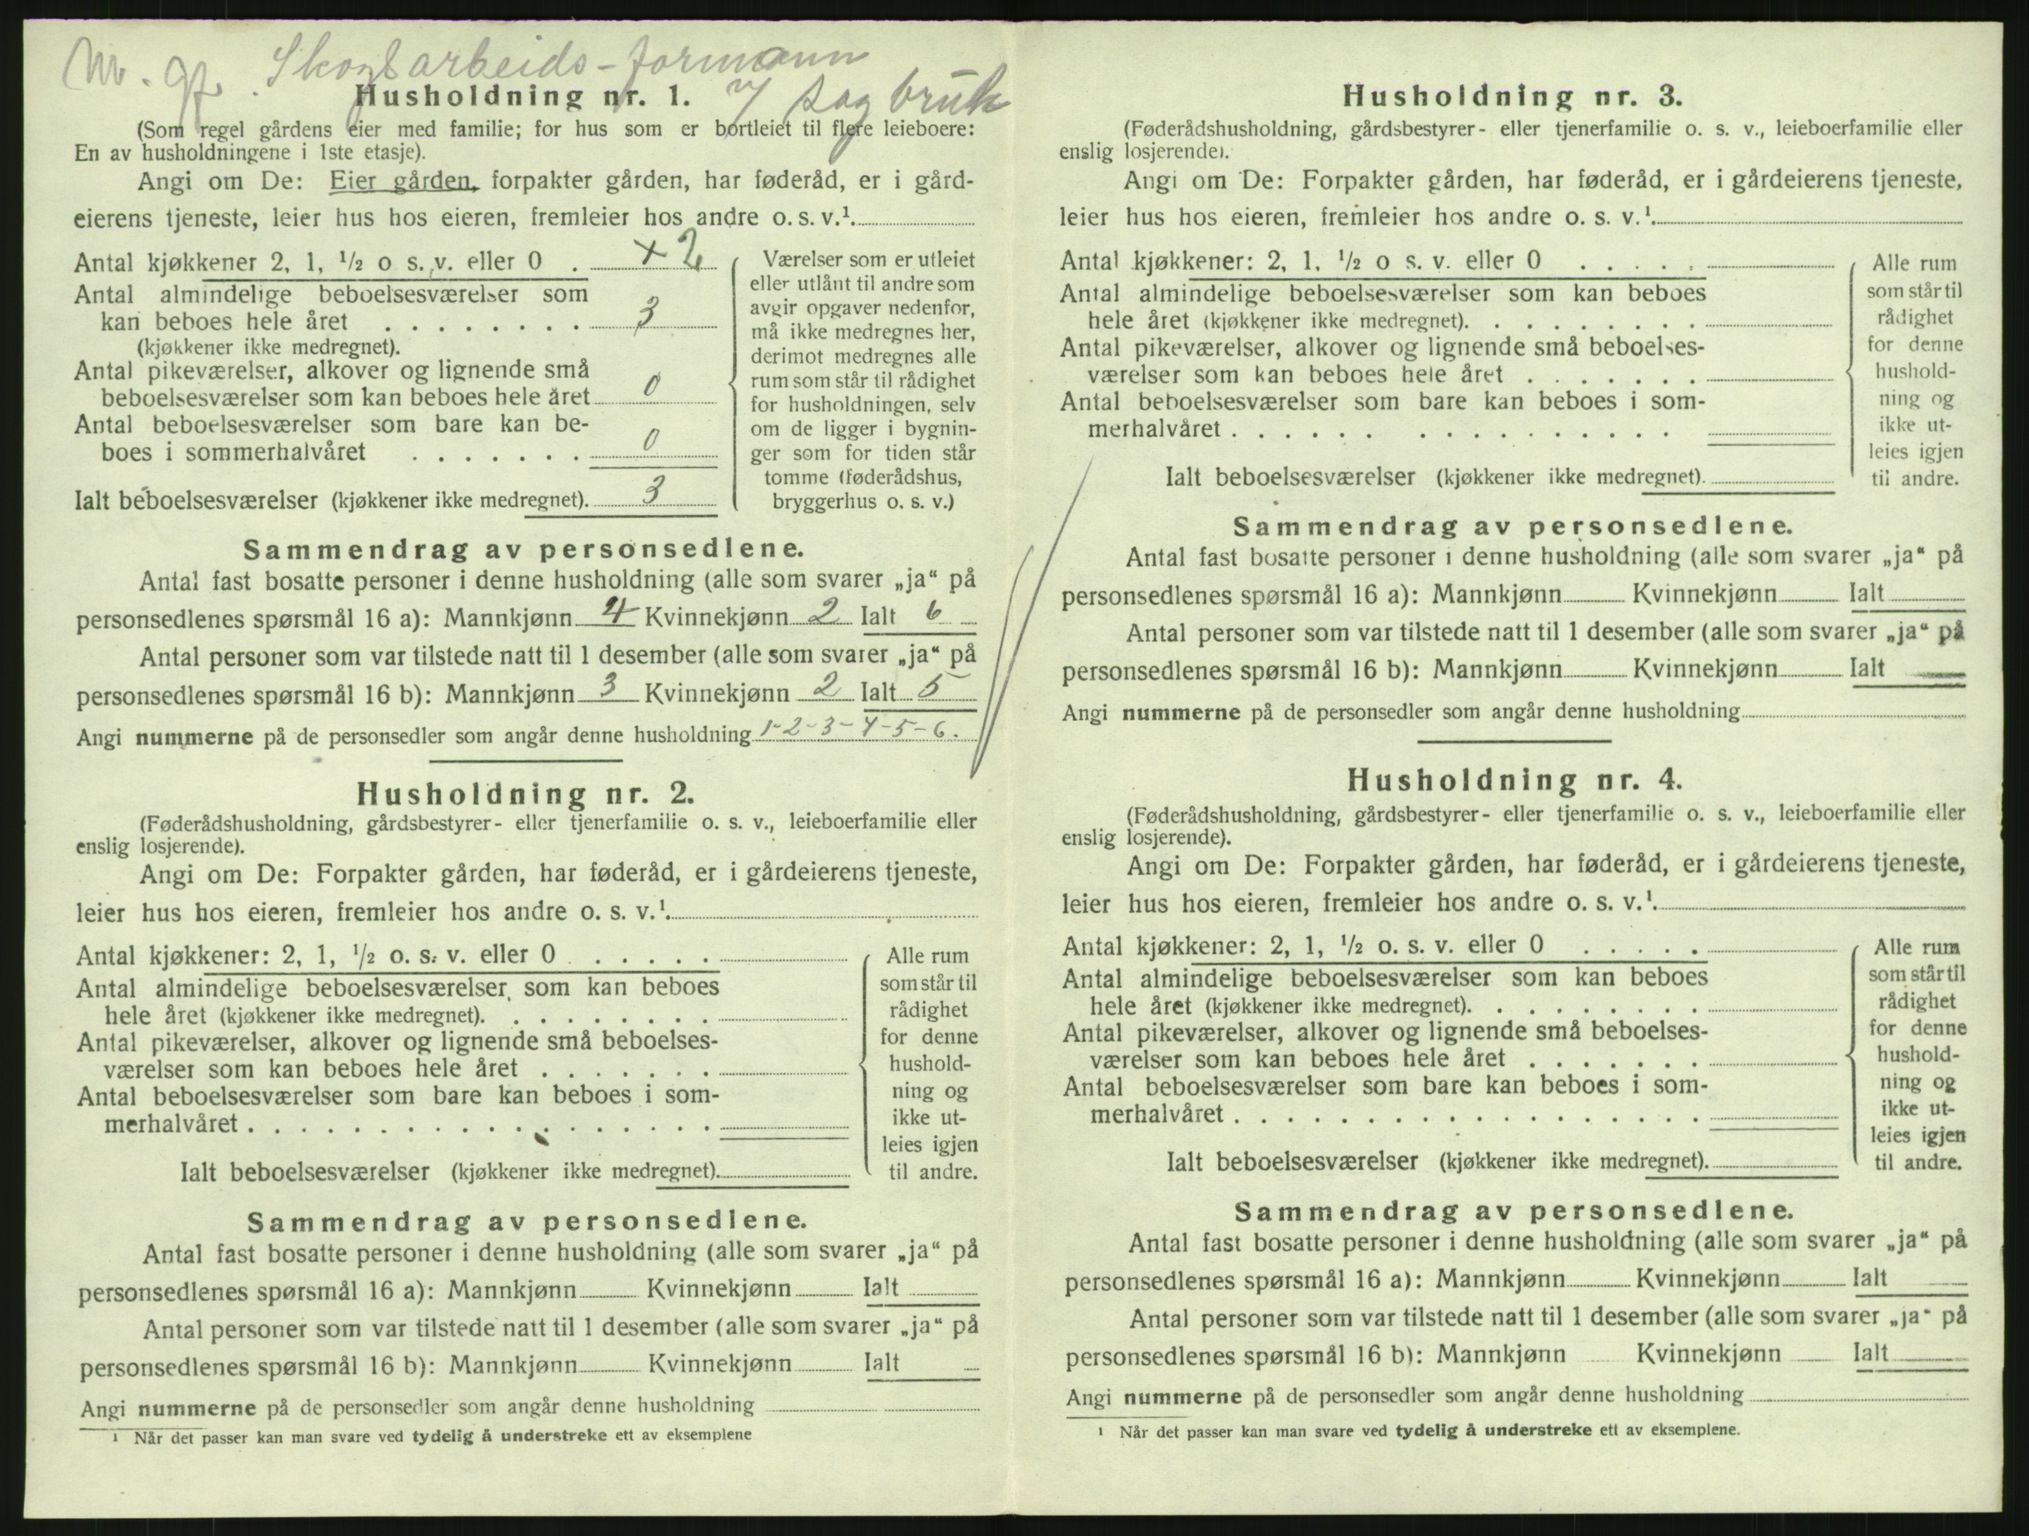 Skogsarbeids-formann
Husholdning nr. 1.
v/ sagbruk
(Som regel gårdens eier med familie; for hus som er bortleiet til flere leieboere:
En av husholdningene i 1ste etasje).
Angi om De: Eier gården, forpakter gården, har føderåd, er i gård-
eierens tjeneste, leier hus hos eieren, fremleier hos andre o. s. v.¹
Antal kjøkkener 2, 1, ½ o s. v. eller 0 . × 2
Antal almindelige beboelsesværelser som
kan beboes hele året . . . . . . . . 3
(kjøkkener ikke medregnet).
Antal pikeværelser, alkover og lignende små
beboelsesværelser som kan beboes hele året 0
Antal beboelsesværelser som bare kan be-
boes i sommerhalvåret . . . . . . . 0
Ialt beboelsesværelser (kjøkkener ikke medregnet). 3
Værelser som er utleiet
eller utlånt til andre som
avgir opgaver nedenfor,
må ikke medregnes her,
derimot medregnes alle
rum som står til rådighet
for husholdningen, selv
om de ligger i bygnin-
ger som for tiden står
tomme (føderådshus,
bryggerhus o. s. v.)
Sammendrag av personsedlene.
Antal fast bosatte personer i denne husholdning (alle som svarer „ja“ på
personsedlenes spørsmål 16 a): Mannkjønn 4 Kvinnekjønn 2 Ialt 6
Antal personer som var tilstede natt til 1 desember (alle som svarer „ja“ på
personsedlenes spørsmål 16 b): Mannkjønn 3 Kvinnekjønn 2 Ialt 5
Angi nummerne på de personsedler som angår denne husholdning 1-2-3-4-5-6.
Husholdning nr. 2.
(Føderådshusholdning, gårdsbestyrer- eller tjenerfamilie o. s. v., leieboerfamilie eller
enslig losjerende).
Angi om De: Forpakter gården, har føderåd, er i gårdeierens tjeneste,
leier hus hos eieren, fremleier hos andre o. s. v.¹
Antal kjøkkener: 2, 1, ½ o. s. v. eller 0 . . . . .
Antal almindelige beboelsesværelser som kan beboes
hele året (kjøkkener ikke medregnet). . . . . . . . .
Antal pikeværelser, alkover og lignende små beboelses-
værelser som kan beboes hele året . . . . . . .
Antal beboelsesværelser som bare kan beboes i som-
merhalvåret . . . . . . . . . . . . . . . . . .
Ialt beboelsesværelser (kjøkkener ikke medregnet).
Alle rum
som står til
rådighet
for denne
hushold-
ning og
ikke ut-
leies igjen
til andre.
Sammendrag av personsedlene.
Antal fast bosatte personer i denne husholdning (alle som svarer „ja“ på
personsedlenes spørsmål 16 a): Mannkjønn Kvinnekjønn Ialt
Antal personer som var tilstede natt til 1 desember (alle som svarer „ja“ på
personsedlenes spørsmål 16 b): Mannkjønn Kvinnekjønn Ialt
Angi nummerne på de personsedler som angår denne husholdning
¹ Når det passer kan man svare ved tydelig å understreke ett av eksemplene
Husholdning nr. 3.
(Føderådshusholdning, gårdsbestyrer- eller tjenerfamilie o. s. v., leieboerfamilie eller
enslig losjerende).
Angi om De: Forpakter gården, har føderåd, er i gårdeierens tjeneste,
leier hus hos eieren, fremleier hos andre o. s. v.¹
Antal kjøkkener: 2, 1, ½ o s. v. eller 0 . . . . .
Antal almindelige beboelsesværelser som kan beboes
hele året (kjøkkener ikke medregnet). . . . . . . . .
Antal pikeværelser, alkover og lignende små beboelses-
værelser som kan beboes hele året . . . . . . .
Antal beboelsesværelser som bare kan beboes i som-
merhalvåret . . . . . . . . . . . . . . . . . .
Ialt beboelsesværelser (kjøkkener ikke medregnet).
Alle rum
som står til
rådighet
for denne
hushold-
ning og
ikke ut-
leies igjen
til andre.
Sammendrag av personsedlene.
Antal fast bosatte personer i denne husholdning (alle som svarer „ja“ på
personsedlenes spørsmål 16 a): Mannkjønn Kvinnekjønn Ialt
Antal personer som var tilstede natt til 1 desember (alle som svarer „ja“ på
personsedlenes spørsmål 16 b): Mannkjønn Kvinnekjønn Ialt
Angi nummerne på de personsedler som angår denne husholdning
Husholdning nr. 4.
(Føderådshusholdning, gårdsbestyrer- eller tjenerfamilie o. s. v., leieboerfamilie eller
enslig losjerende).
Angi om De: Forpakter gården, har føderåd, er i gårdeierens tjeneste,
leier hus hos eieren, fremleier hos andre o. s. v.¹
Antal kjøkkener: 2, 1, ½ o. s. v. eller 0 . . . . .
Antal almindelige beboelsesværelser som kan beboes
hele året (kjøkkener ikke medregnet). . . . . . . . .
Antal pikeværelser, alkover og lignende små beboelses-
værelser som kan beboes hele året . . . . . . .
Antal beboelsesværelser som bare kan beboes i som-
merhalvåret . . . . . . . . . . . . . . . . . .
Ialt beboelsesværelser (kjøkkener ikke medregnet).
Alle rum
som står til
rådighet
for denne
hushold-
ning og
ikke ut-
leies igjen
til andre.
Sammendrag av personsedlene.
Antal fast bosatte personer i denne husholdning (alle som svarer „ja“ på
personsedlenes spørsmål 16 a): Mannkjønn Kvinnekjønn Ialt
Antal personer som var tilstede natt til 1 desember (alle som svarer „ja“ på
personsedlenes spørsmål 16 b): Mannkjønn Kvinnekjønn Ialt
Angi nummerne på de personsedler som angår denne husholdning
¹ Når det passer kan man svare ved tydelig å understreke ett av eksemplene.